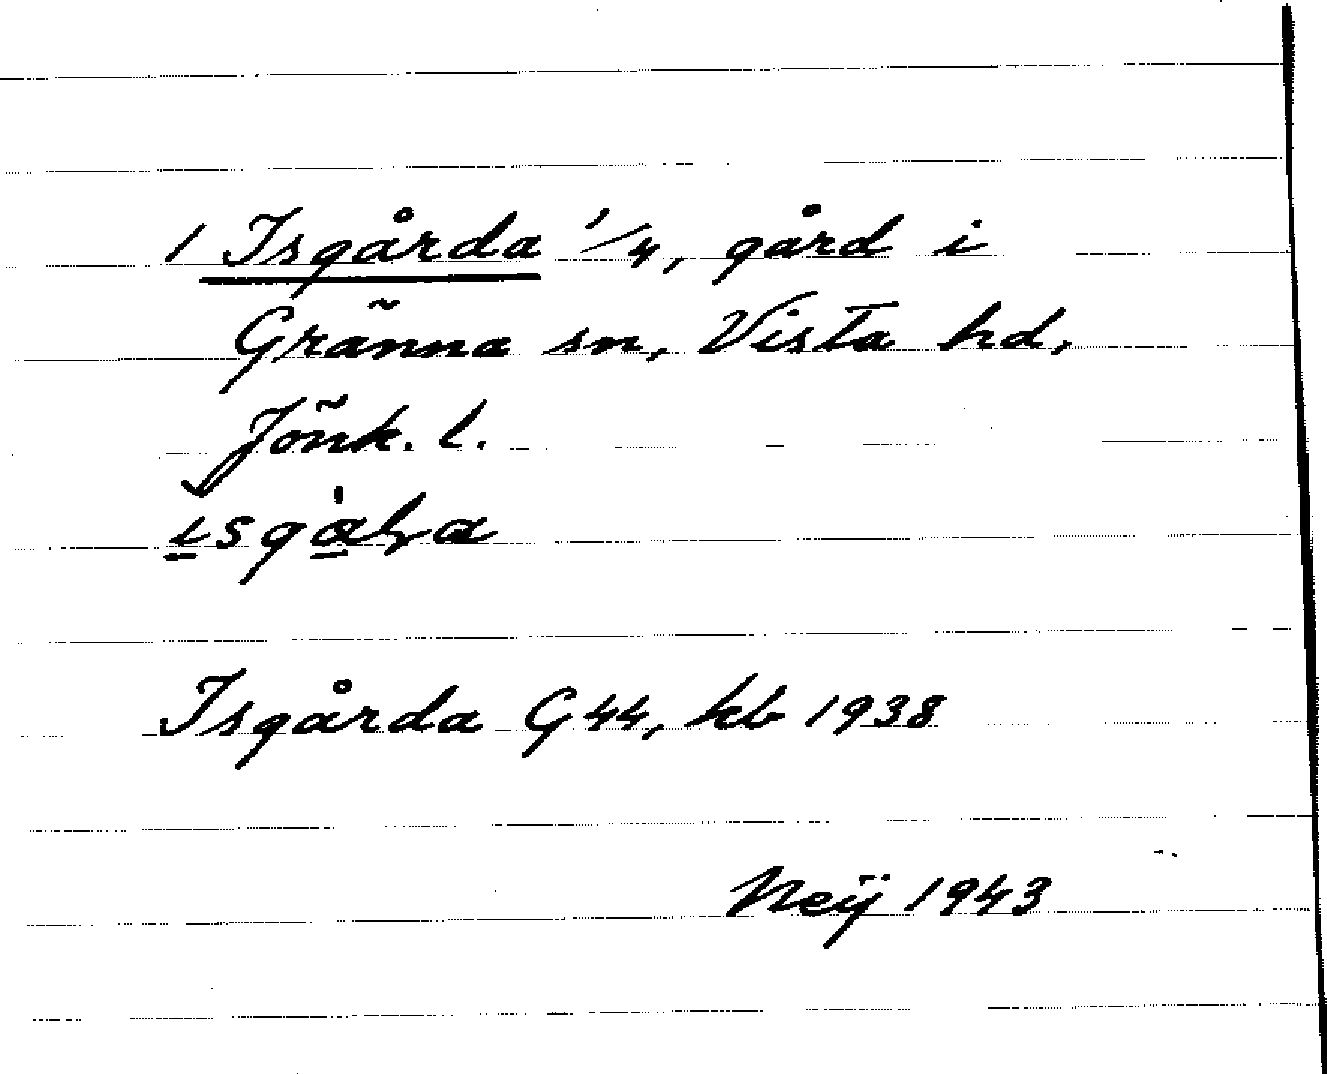 1 Isgårda 1/4, gård i
Gränna sn, Vista hd,
Jönk. l.
Isgårda G 44, kb 1938
Neij 1943